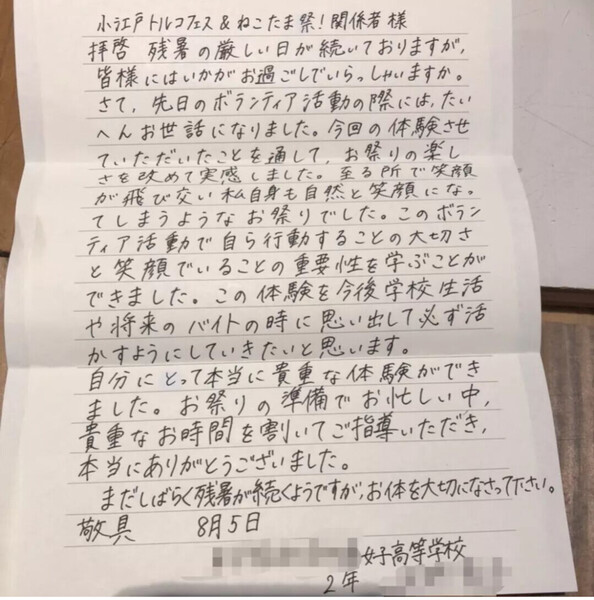 小江戸トルコフェス&ねこたま祭!関係者様
拝啓 残暑の厳しい日が続いておりますが、
皆様にはいかがお過ごしでいらっしゃいますか。
さて、先日のボランティア活動の際には、たい
へんお世話になりました。今回の体験させ
ていただいたことを通して、お祭りの楽し
さを改めて実感しました。至る所で笑顔
が飛び交い私自身も自然と笑顔になっ
てしまうようなお祭りでした。このボラン
ティア活動で自ら行動することの大切さ
と笑顔でいることの重要性を学ぶことが
できました。この体験を今後学校生活
や将来のバイトの時に思い出して必ず活
かすようにしていきたいと思います。
自分にとって本当に貴重な体験ができ
ました。お祭りの準備でお忙しい中、
貴重なお時間を割いてご指導いただき、
本当にありがとうございました。
まだしばらく残暑が続くようですが、お体を大切になさって下さい。
敬具 8月5日
女子高等学校
2年